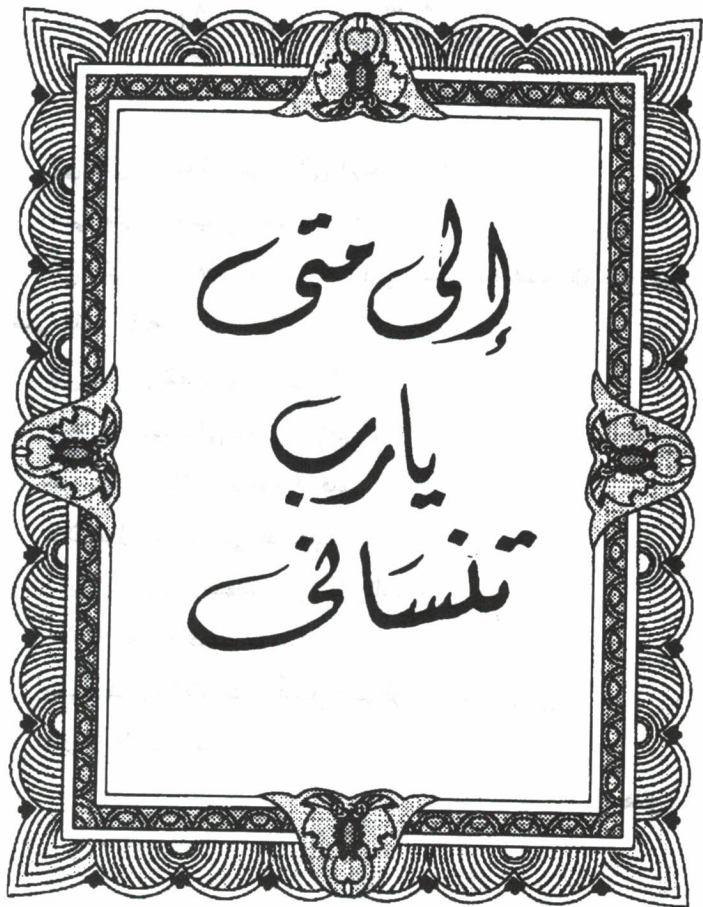 إلى متى
يارب
تنسَانى